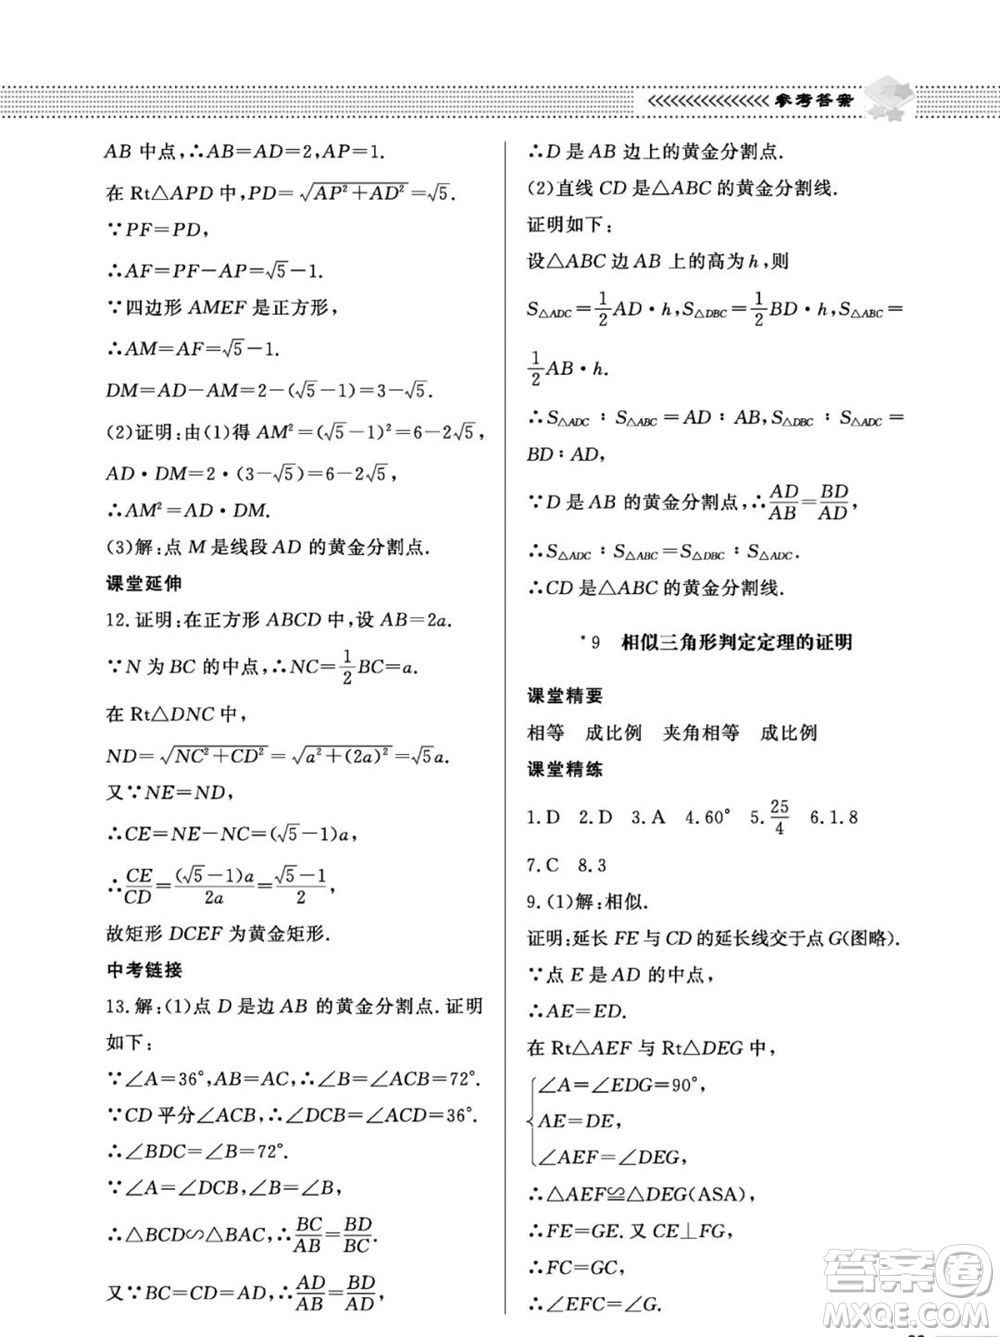 <<<<<<<<<<<<<<< 参考答案
AB 中点,∴AB=AD=2,AP=1.
在 Rt△APD 中,PD=√(AP²+AD²)=√5.
∵PF=PD,
∴AF=PF-AP=√5-1.
∵四边形 AMEF 是正方形,
∴AM=AF=√5-1.
DM=AD-AM=2-(√5-1)=3-√5.
(2)证明:由(1)得 AM²=(√5-1)²=6-2√5,
AD·DM=2·(3-√5)=6-2√5,
∴AM²=AD·DM.
(3)解:点 M 是线段 AD 的黄金分割点.
课堂延伸
12.证明:在正方形 ABCD 中,设 AB=2a.
∵N 为 BC 的中点,∴NC=1/2 BC=a.
在 Rt△DNC 中,
ND=√(NC²+CD²)=√(a²+(2a)²)=√5a.
又∵NE=ND,
∴CE=NE-NC=(√5-1)a,
∴CE/CD=(√5-1)a/2a=(√5-1)/2,
故矩形 DCEF 为黄金矩形.
中考链接
13.解:(1)点 D 是边 AB 的黄金分割点.证明
如下:
∵∠A=36°,AB=AC,∴∠B=∠ACB=72°.
∵CD 平分∠ACB,∴∠DCB=∠ACD=36°.
∴∠BDC=∠B=72°.
∵∠A=∠DCB,∠B=∠B,
∴△BCD∽△BAC,∴BC/AB=BD/BC.
又∵BC=CD=AD,∴AD/AB=BD/AD,
∴D 是 AB 边上的黄金分割点.
(2)直线 CD 是△ABC 的黄金分割线.
证明如下:
设△ABC 边 AB 上的高为 h,则
S△ADC=1/2 AD·h,S△DBC=1/2 BD·h,S△ABC=
1/2 AB·h.
∴S△ADC∶S△ABC=AD∶AB,S△DBC∶S△ADC=
BD∶AD,
∵D 是 AB 的黄金分割点,∴AD/AB=BD/AD,
∴S△ADC∶S△ABC=S△DBC∶S△ADC.
∴CD 是△ABC 的黄金分割线.
*9 相似三角形判定定理的证明
课堂精要
相等 成比例 夹角相等 成比例
课堂精练
1.D 2.D 3.A 4.60° 5.25/4 6.1.8
7.C 8.3
9.(1)解:相似.
证明:延长 FE 与 CD 的延长线交于点 G(图略).
∵点 E 是 AD 的中点,
∴AE=ED.
在 Rt△AEF 与 Rt△DEG 中,
∠A=∠EDG=90°,
AE=DE,
∠AEF=∠DEG,
∴△AEF≌△DEG(ASA)
∴FE=GE.又 CE⊥FG,
∴FC=GC,
∴∠EFC=∠G.
答案圈
MXQE.COM